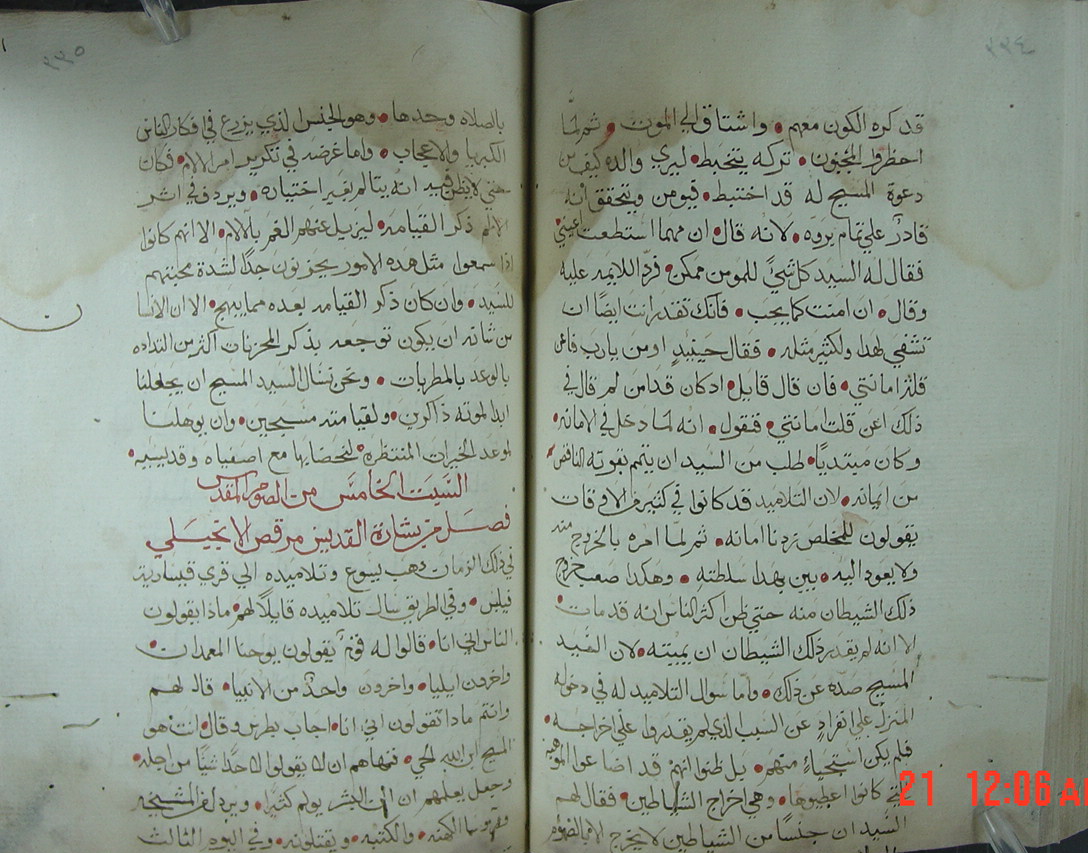 ٢٣٤
قد كره الكون معهم • واشتاق الي الموت • ثم لما
احظروا المجنون • تركه يتخبط • ليري والده كيف من
دعوة المسيح له قد اختبط • فيومن ويتحقق انه
قادرٌ علي تمام بروه • لانه قال • ان مهما استطعت اعيني
فقال له السيد كل شيً للمومن ممكن • فرد اللايمه عليه
وقال • ان امنت كما يجب • فانك تقدر انت ايضًا ان
تشفي لهدا ولكثير مثله • فقال حينيدٍ اومن يارب فاعن
قلة امانتي • فان قال قايل • ادكان قد امن لم قال في
ذلك اعن قلت امانتي • فنقول • انه لما دخل في الامانه •
وكان مبتديًا • طلب من السيد ان يتمم بقوته الناقص
من ايمانه • لان التلاميد قد كانوا في كثير من الاوقات
يقولون للمخلص زدنا امانه • ثم لما امره بالخروج منه
ولا يعود اليه • بين بهدا سلطته • وهكدا صعب خروج
ذلك الشيطان منه حتي ظن اكثر الناس انه قد مات •
الا انه لم يقدر ذلك الشيطان ان يميته • لان السيد
المسيح صده عن ذلك • واما سوال التلاميد له في دخوله
المنزل علي انفرادٍ عن السبب الذي لم يقدروا علي اخراجه •
فلم يكن استحياءً منهم • بل ظنوا انهم قد اضاعوا الموهبه
التي كانوا اعطيوها • وهي اخراج الشياطين • فقال لهم
السيد ان جنسًا من الشياطين لا يخرج الا بالصوم
٢٣٥
بالصلاه وحدها • وهو الجنس الذي يزرع في فكار الناس
الكبريا والاعجاب • واما غرضه في تكرير امر الالام • فكان
حتي لا يظن فيه انه يتالم بغير اختياره • ويردف في اثر
الالم ذكر القيامه • ليزيل عنهم الغم بالالام • الا انهم كانوا
اذا سمعوا مثل هده الامور يحزنون جدًا لشدة محبتهم
للسيد • وان كان ذكر القيامه بعده مما يبهج • الا ان الانسان
من شانه ان يكون توجعه بذكر المحزنات اكثر من التداده
بالوعد بالمطربات • ونحن نسال السيد المسيح ان يجعلنا
ابدا لموته ذاكرين • ولقيامته مسبحين • وان يوهلنا
لموعد الخيرات المنتظره • لنحصايها مع اصفياه وقديسيه •
السبت الخامس من الصوم المقدس
فصل من بشارة القديس مرقص الانجيلي
في ذلك الزمان دهب يسوع وتلاميده الي قري قيسارية
فيلبس • وفي الطريق سال تلاميده قايلًا لهم • ماذا يقولون
الناس اني انا • قالوا له قومٌ يقولون يوحنا المعمدان
واخرون ايليا • واخرون واحدٌ من الانبيا • قال لهم
وانتم مادا تقولون اني انا • اجاب بطرس وقال • انت هو
المسيح ابن الله الحي • فنهاهم ان لا يقولوا لاحدًا شيًا من اجله •
وجعل يعلمهم ان ابن البشر يولم كثيرًا • ويردل من المشيخه
الكهنه • والكتبه • ويقتلونه • وفي اليوم الثالث
21 12:06 AM